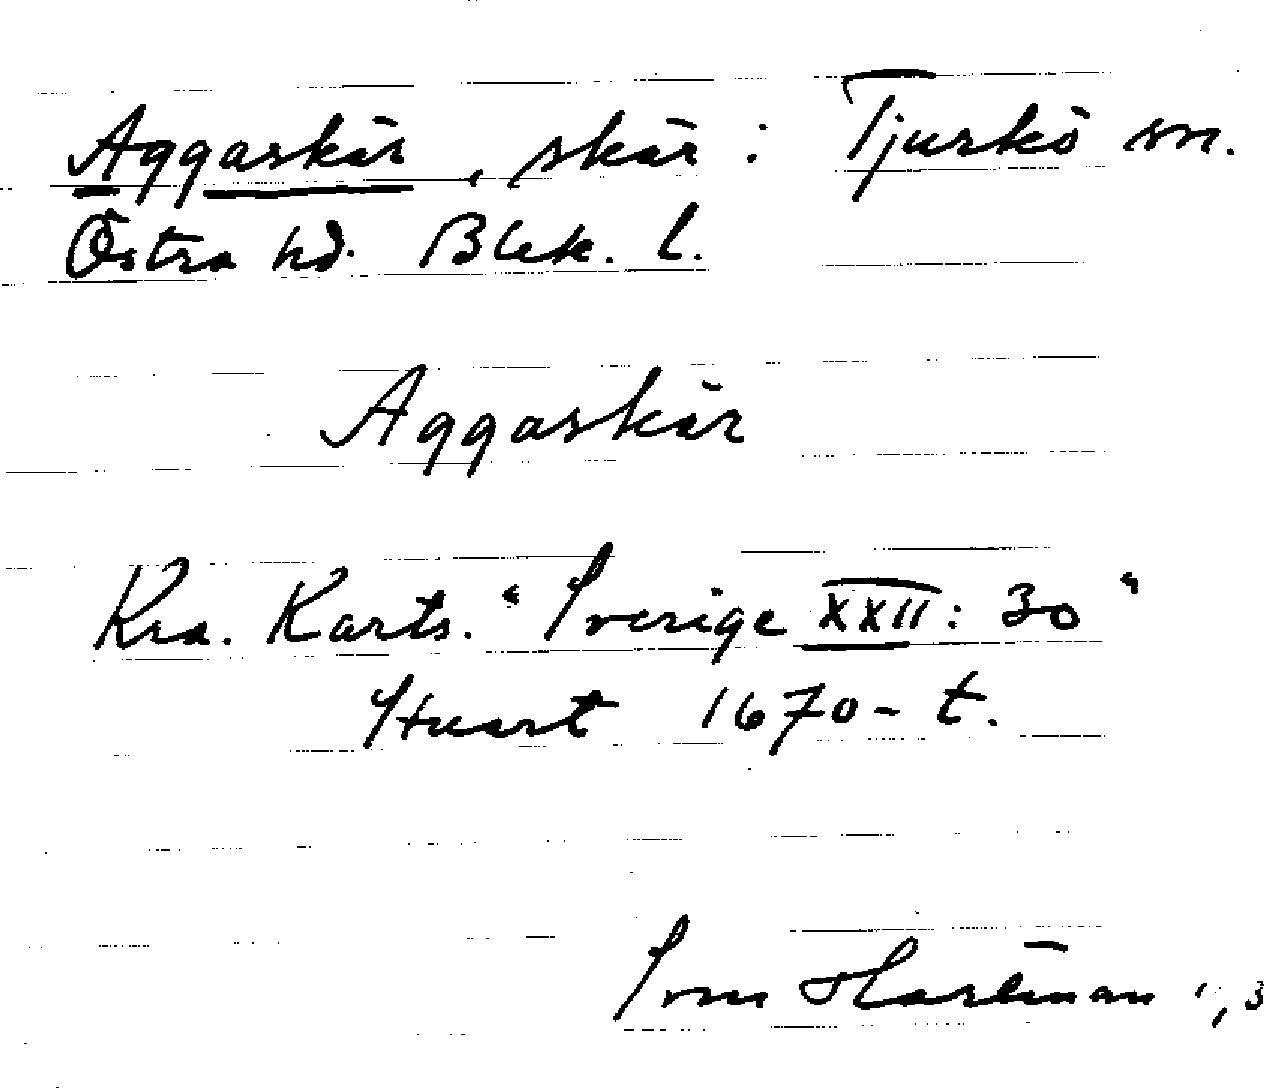 Aggaskär, skär: Tjurkö sn.
Östra hd. Blek. l.
Aggaskär
Kra. Karts. "Sverige XXII: 30"
Huart 1670-t.
Sven